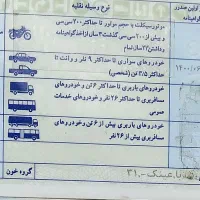 نوع وسیله نقلیه
اولین صدور
موتورسیکلت با حجم موتور تا حداکثر ۲۰۰ سی سی
و بیش از ۲۰۰ سی سی گذشت ۳ سال از اخذ گواهینامه
۱۴۰۰/۰۶
خودروهای سواری تا حداکثر ۹ نفر و وانت تا
حداکثر ۳/۵ تن (شخصی)
خودروهای باربری تا حداکثر ۶ تن و خودروهای
مسافربری تا حداکثر ۲۶ نفر و خودروهای خدمات
عمومی
خودروهای باربری بیش از ۶ تن و خودروهای
مسافربری بیش از ۲۶ نفر
گروه خون
عینک -.۳۱